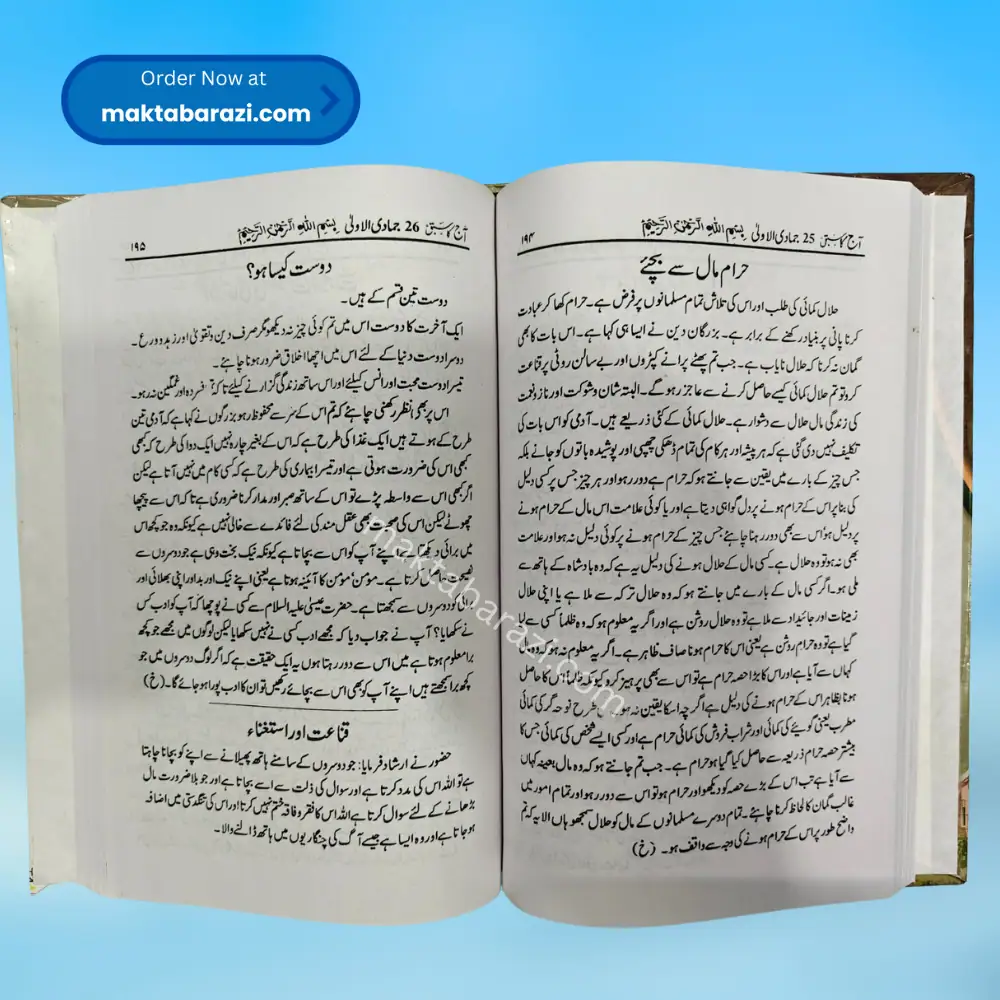 Order Now at
maktabarazi.com
آج کا سبق 25 جمادی الاولیٰ بِسْمِ اللهِ الرَّحْمٰنِ الرَّحِیْمِ ۱۹۴
حرام مال سے بچئے
حلال کمائی کی طلب اور اس کی تلاش تمام مسلمانوں پر فرض ہے۔ حرام کھا کر عبادت
کرنا پانی پر بنیاد رکھنے کے برابر ہے۔ بزرگان دین نے ایسا ہی کہا ہے۔ اس بات کا بھی
گمان نہ کرنا کہ حلال نایاب ہے۔ جب تم پھٹے پرانے کپڑوں اور بے سالن روٹی پر قناعت
کرو تو تم حلال کمائی کیسے حاصل کرنے سے عاجز رہو گے۔ البتہ شان و شوکت اور ناز و نعمت
کی زندگی مال حلال سے دشوار ہے۔ حلال کمائی کے کئی ذریعے ہیں۔ آدمی کو اس بات کی
تکلیف نہیں دی گئی ہے کہ ہر پیشہ اور ہر کام کی تمام ڈھکی چھپی اور پوشیدہ باتوں کو جانے بلکہ
جس چیز کے بارے میں یقین سے جانتے ہو کہ حرام ہے دور رہو اور ہر چیز جس پر کسی دلیل
کی بنا پر اس کے حرام ہونے پر دل گواہی دیتا ہے اور یا کوئی علامت اس مال کے حرام ہونے
پر دلیل ہو اس سے بھی دور رہنا چاہئے جس چیز کے حرام ہونے پر کوئی دلیل نہ ہو اور علامت
بھی نہ ہو تو وہ حلال ہے۔ کسی مال کے حلال ہونے کی دلیل یہ ہے کہ وہ بادشاہ کے ہاتھ سے
ملی ہو۔ اگر کسی مال کے بارے میں جانتے ہو کہ وہ حلال ترکہ سے ملا ہے یا اپنی حلال
زمینات اور جائیداد سے ملا ہے تو وہ حلال روشن ہے اور اگر یہ معلوم ہو کہ وہ ظلماً کسی سے لیا
گیا ہے تو وہ حرام روشن ہے یعنی اس کا حرام ہونا صاف ظاہر ہے۔ اگر یہ معلوم نہ ہو کہ وہ مال
کہاں سے آیا ہے اور اس کا بڑا حصہ حرام ہے تو اس سے بھی پرہیز کرو کیونکہ وہاں اس کا حاصل
ہونا بظاہر اس کے حرام ہونے کی دلیل ہے اگر چہ اسکا یقین نہ ہو اسی طرح نوحہ گر کی کمائی
مطرب یعنی گویئے کی کمائی اور شراب فروش کی کمائی حرام ہے اور کسی ایسے شخص کی کمائی جس کا
بیشتر حصہ حرام ذریعہ سے حاصل کیا گیا ہو حرام ہے۔ جب تم جانتے ہو کہ وہ مال بعینہ کہاں
سے آیا ہے تب اس کے بڑے حصہ کو دیکھو اور حرام ہو تو اس سے دور رہو اور تمام امور میں
غالب گمان کا لحاظ کرنا چاہئے۔ تمام دوسرے مسلمانوں کے مال کو حلال سمجھو ہاں الا یہ کہ تم
واضح طور پر اس کے حرام ہونے کی وجہ سے واقف ہو۔ (خ)
آج کا سبق 26 جمادی الاولیٰ بِسْمِ اللهِ الرَّحْمٰنِ الرَّحِیْمِ ۱۹۵
دوست کیسا ہو؟
دوست تین قسم کے ہیں۔
ایک آخرت کا دوست اس میں تم کوئی چیز نہ دیکھو مگر صرف دین و تقویٰ اور زہد و ورع۔
دوسرا دوست دنیا کے لئے اس میں اچھا اخلاق ضرور ہونا چاہئے۔
تیسرا دوست محبت اور انس کیلئے اور اس ساتھ زندگی گزارنے کیلئے تا کہ تم افسردہ اور غمگین نہ رہو۔
اس پر بھی نظر رکھنی چاہئے کہ تم اس کے شر سے محفوظ رہو بزرگوں نے کہا ہے کہ آدمی تین
طرح کے ہوتے ہیں ایک غذا کی طرح ہے کہ اس کے بغیر چارہ نہیں ایک دوا کی طرح کہ کبھی
کبھی اس کی ضرورت ہوتی ہے اور تیسرا بیماری کی طرح ہے کہ کسی کام میں نہیں آتا ہے لیکن
اگر کبھی اس سے واسطہ پڑے تو اس کے ساتھ صبر اور مدار کرنا ضروری ہے تا کہ اس سے پیچھا
چھوٹے لیکن اس کی صحبت بھی عقل مند کی لئے فائدے سے خالی نہیں ہے کیونکہ وہ جو کچھ اس
میں برائی دیکھتا ہے اپنے آپ کو اس سے بچاتا ہے کیونکہ نیک بخت وہی ہے جو دوسروں سے
نصیحت حاصل کرتا ہے۔ مومن، مومن کا آئینہ ہوتا ہے یعنی اپنے نیک اور بد اور اپنی بھلائی اور
برائی کو دوسروں سے سمجھتا ہے۔ حضرت عیسیٰ علیہ السلام سے کسی نے پوچھا کہ آپ کو ادب کس
نے سکھایا؟ آپ نے جواب دیا کہ مجھے ادب کسی نے نہیں سکھایا لیکن لوگوں میں مجھے جو کچھ
برا معلوم ہوتا ہے میں اس سے دور رہتا ہوں یہ ایک حقیقت ہے کہ اگر لوگ دوسروں میں جو
کچھ برا سمجھتے ہیں اپنے آپ کو بھی اس سے بچائے رکھیں تو ان کا ادب پورا ہو جائے گا۔ (خ)
قناعت اور استغناء
حضور نے ارشاد فرمایا: جو دوسروں کے سامنے ہاتھ پھیلانے سے اپنے کو بچانا چاہتا
ہے تو اللہ اس کی مدد کرتا ہے اور سوال کی ذلت سے اسے بچاتا ہے اور جو بلا ضرورت مال
بڑھانے کے لئے سوال کرتا ہے اللہ اس کا فقر و فاقہ ختم نہیں کرتا اور اس کی تنگدستی میں اضافہ
ہو جاتا ہے اور وہ ایسا ہے جیسے آگ کی چنگاریوں میں ہاتھ ڈالنے والا۔
maktabarazi.com